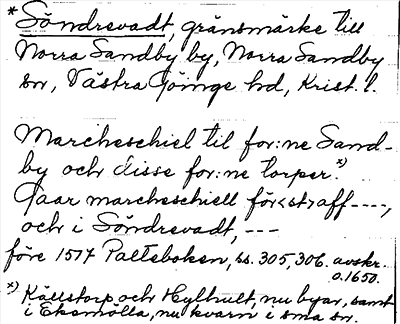 * Söndrevadt, gränsmärke till
Norra Sandby by, Norra Sandby
sn, Västra Göinge hd, Krist. l.
Marcheschiel til for:ne Sand-
by och disse for:ne torper.*)
Gaar marcheschiell först aff ----,
och i Söndrevadt, ---
före 1517 Palteboken, ss. 305, 306. avskr.
o. 1650.
*) Källstorp och Hylhult, nu byar, samt
i Ekemölla, nu kvarn i sma sn.